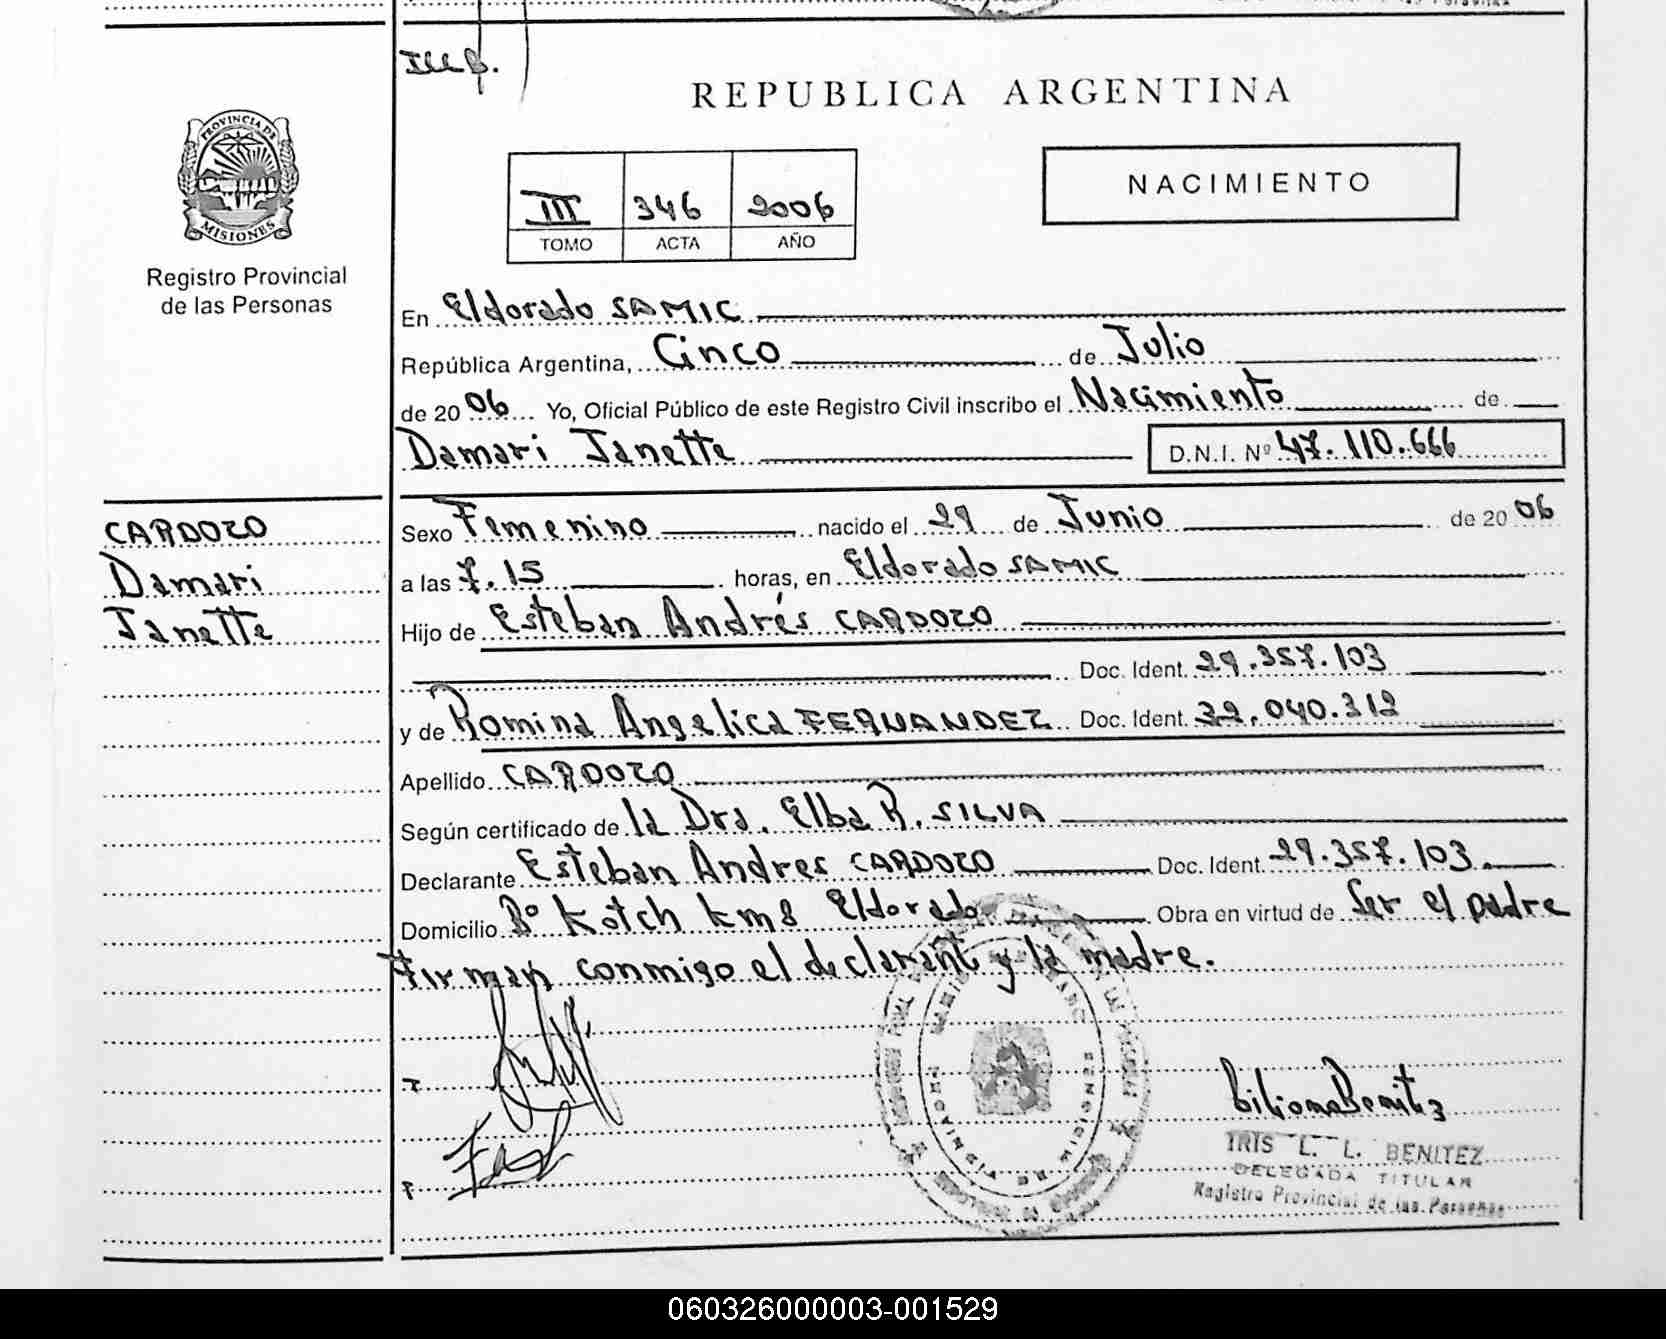 REPUBLICA ARGENTINA
PROVINCIA DE
MISIONES
Registro Provincial
de las Personas
III 346 2006
TOMO ACTA AÑO
NACIMIENTO
En Eldorado SAMIC
República Argentina, Cinco de Julio
de 2006 Yo, Oficial Público de este Registro Civil inscribo el Nacimiento de
Damari Janette D.N.I. Nº 47.110.666
CARDOZO
Damari
Janette
Sexo Femenino nacido el 29 de Junio de 2006
a las 7.15 horas, en Eldorado SAMIC
Hijo de Esteban Andrés CARDOZO
Doc. Ident. 29.357.103
y de Romina Angelica FERNANDEZ Doc. Ident. 32.040.312
Apellido CARDOZO
Según certificado de la Dra. Elba R. SILVA
Declarante Esteban Andres CARDOZO Doc. Ident. 29.357.103
Domicilio Bº Kotch km 8 Eldorado Obra en virtud de Ser el padre
Firman conmigo el declarant y la madre.
IRIS L. L. BENITEZ
DELEGADA TITULAR
Registro Provincial de las Personas
060326000003-001529